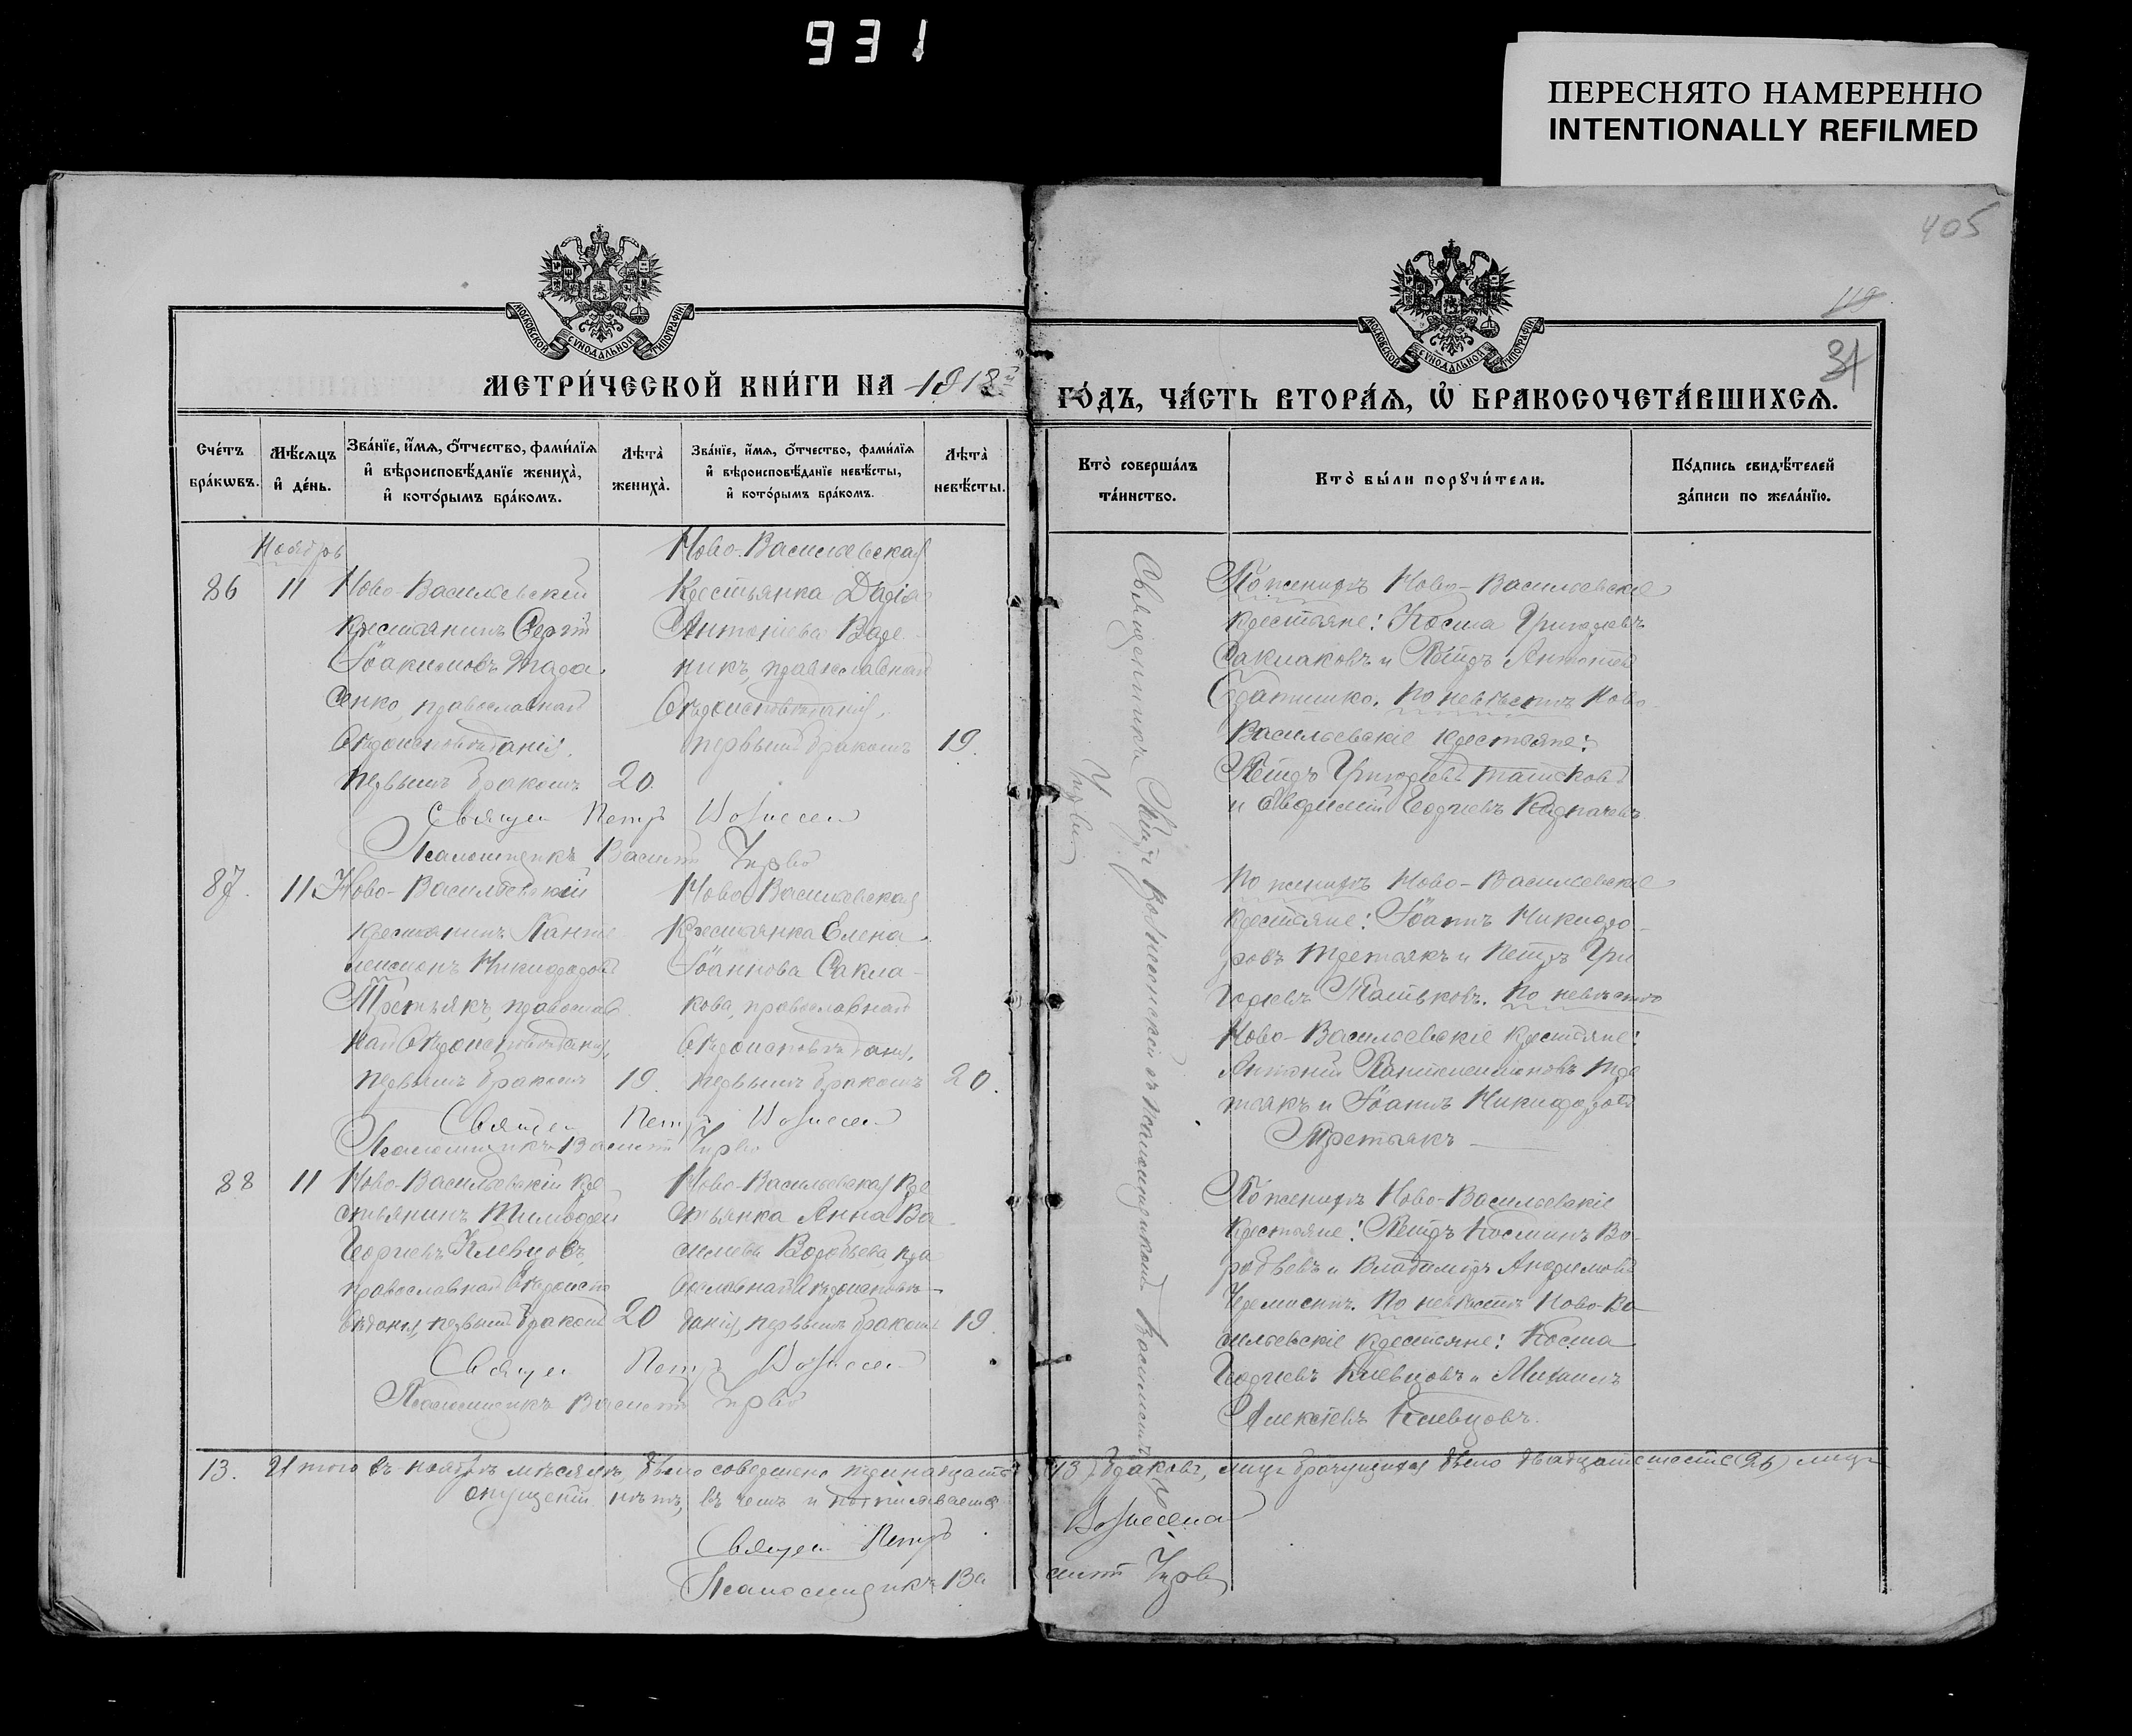 931
ПЕРЕСНЯТО НАМЕРЕННО
INTENTIONALLY REFILMED
405
119
31
МОСКОВСКОЙ СУНОДАЛЬНОЙ ТИПОГРАФІИ
МОСКОВСКОЙ СУНОДАЛЬНОЙ ТИПОГРАФІИ
МЕТРИ́ЧЕСКОЙ КНИ́ГИ НА 1918й
ГО́ДЪ, ЧА́СТЬ ВТОРА́Ѧ, Ѡ҆ БРАКОСОЧЕТА́ВШИХСѦ.
Сче́тъ бра́кωвъ.
Мѣ́сѧцъ и҆ де́нь.
Зва́нїе, и҆́мѧ, ѻ҆́тчество, фами́лїѧ
и҆ вѣроисповѣ́данїе жениха̀,
и҆ кото́рымъ бра́комъ.
Лѣта̀ жениха̀.
Зва́нїе, и҆́мѧ, ѻ҆́тчество, фами́лїѧ
и҆ вѣроисповѣ́данїе невѣ́сты,
и҆ кото́рымъ бра́комъ.
Лѣта̀ невѣ́сты.
Кто̀ соверша́лъ та́инство.
Кто̀ бы́ли порꙋчи́тели.
По́дпись свидѣ́телей за́писи по жела́нїю.
Ноябрь
86
11
Ново-Васильевскій
крестьянинъ Сергій
Іоакимовъ Тара-
сенко, православнаго
вѣроисповѣданія.
первымъ бракомъ
20.
Ново-Васильевская
Крестьянка Дарія
Антоніева Варе-
никъ, православнаго
вѣроисповѣданія,
первымъ бракомъ
19.
Священ Петръ Вознесен
Псаломщикъ Василій Чирво
По женихѣ Ново-Васильевскіе
крестьяне: Косма Григорьевъ
Саклаковъ и Петръ Антоніев
По невѣстѣ Ново-
Васильевскіе крестьяне:
Петръ Григорьевъ
и Евфимій Георгіевъ
87.
11
Ново-Васильевскій
крестьянинъ Панте
леимонъ Никифоровъ
Третьякъ, православ
наго вѣроисповѣданія,
первымъ бракомъ
19.
Ново-Васильевская
Крестьянка Елена
Іоаннова Сакла-
кова, православнаго
вѣроисповѣданія,
первымъ бракомъ
20.
Священ Петръ Вознесен
Псаломщикъ Василій Чирво
По женихѣ Ново-Васильевскіе
крестьяне: Іоаннъ Никифо-
ровъ Третьякъ и Петръ Гри
горьевъ По невѣстѣ
Ново-Васильевскіе крестьяне:
Антоній Пантелеимоновъ Тре
тьякъ и Іоаннъ Никифоровъ
Третьякъ
88
11
Ново-Васильевскій кре-
стьянинъ Тимофей
Георгіевъ Клевцовъ,
православнаго вѣроиспо
вѣданія, первымъ бракомъ
20
Ново-Васильевская кре
стьянка Анна Ва-
сильева Воробьева, пра
вославнаго вѣроисповѣ-
данія, первымъ бракомъ
19.
Священ Петръ Вознесен
Псаломщикъ Василій Чирво
По женихѣ Ново-Васильевскіе
крестьяне: Петръ Косминъ Во-
робьевъ и Владиміръ
По невѣстѣ Ново-Ва
сильевскіе крестьяне: Косма
Георгіевъ Клевцовъ и Михаилъ
Алексѣевъ Клевцовъ.
Священникъ Петръ Вознесенскій съ псаломщикомъ Василіемъ
Чирвом
13. Итого въ ноябрѣ мѣсяцѣ, было совершено тринадцать (13) браковъ, лицъ брачущихся было двадцать шесть (26) лицъ
опущеній нѣтъ, въ чемъ и подписываемся
Священ Петръ Вознесен
Псаломщикъ Василій Чирво